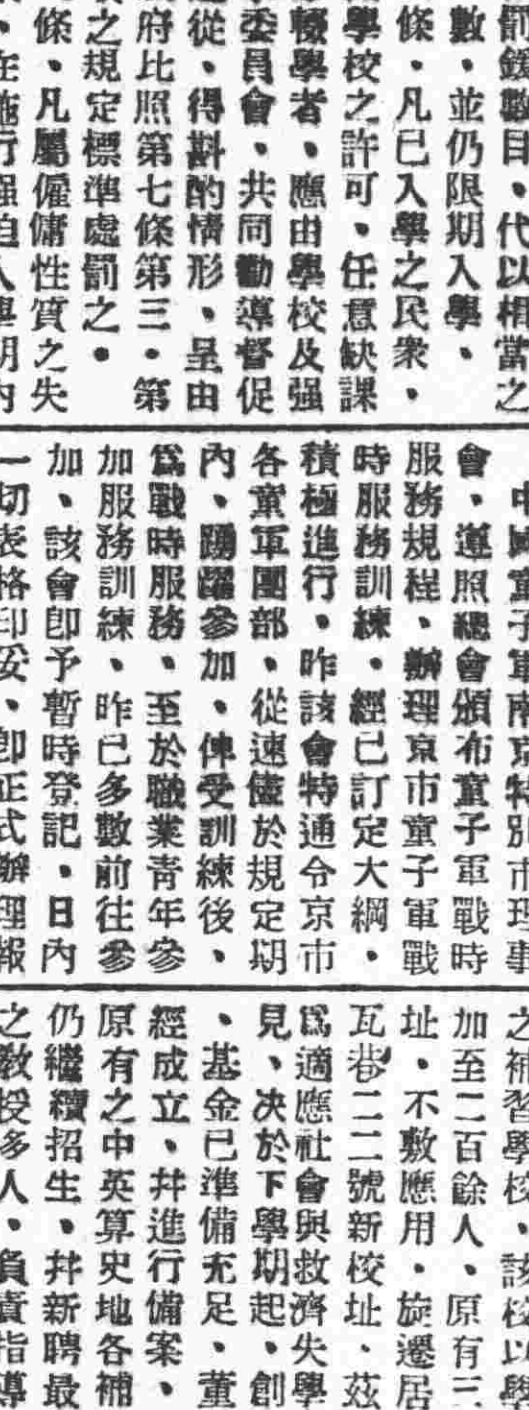 罰鍰數目、代以相當之
數、並仍限期入學、
條、凡已入學之民衆、
學校之許可、任意缺課
輟學者、應由學校及强
委員會、共同勸導督促
從、得斟酌情形、呈由
府比照第七條第三、第
之規定標準處罰之、
條、凡屬僱傭性質之失
、在施行强迫入學期內
中國童子軍南京特別市理事
會、遵照總會頒布童子軍戰時
服務規程、辦理京市童子軍戰
時服務訓練、經已訂定大綱、
積極進行、昨該會特通令京市
各童軍團部、從速儘於規定期
內、踴躍參加、俾受訓練後、
爲戰時服務、至於職業青年參
加服務訓練、昨已多數前往參
加、該會卽予暫時登記、日內
一切表格印妥、卽正式辦理報
之補習學校、該校以學
加至二百餘人、原有三
址、不敷應用、旋遷居
瓦巷二二號新校址、茲
爲適應社會與救濟失學
見、决於下學期起、創
、基金已準備充足、董
經成立、幷進行備案、
原有之中英算史地各補
仍繼續招生、幷新聘最
之教授多人、負責指導